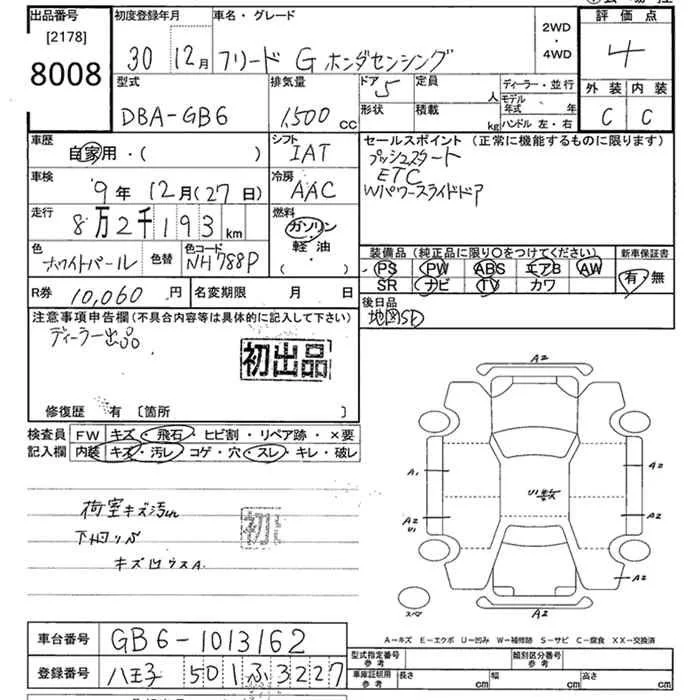 出品番号
[2178]
8008
初度登録年月
30 12月
車名・グレード
フリード G ホンダセンシング
2WD
・
4WD
評価点
4
外装 内装
C C
型式
DBA-GB6
排気量
1,500 cc
ドア 5
定員 人
形状
積載 kg
ディーラー・並行
モデル年式 年
ハンドル 左・右
車歴
自家用・( )
シフト
IAT
セールスポイント (正常に機能するものに限ります)
プッシュスタート
ETC
Wパワースライドドア
車検
9年 12月(27日)
冷房
AAC
走行
8万2千193km
燃料
ガソリン
軽油
・( )
色
ホワイトパール
色替
色コード
NH788P
装備品 (純正品に限り○をつけてください)
PS PW ABS エアB AW
SR ナビ TV カワ
新車保証書
有・無
R券 10,060円
名変期限 月 日
後日品
地図SD
注意事項申告欄 (不具合内容等は具体的に記入して下さい)
ディーラー出品
初出品
修復歴 有 [箇所 ]
検査員
記入欄
FW キズ・飛石・ヒビ割・リペア跡・×要
内装 キズ・汚レ・コゲ・穴・スレ・キレ・破レ
荷室キズ汚れ
キズ凹ウスA
初
A2
A1
A2
U1
U1数
A2
A2
A2
A2
スペア
A-キズ E-エクボ U-凹み W-補修跡 S-サビ C-腐食 XX-交換済
車台番号 GB6-1013162
登録番号 八王子 501 ふ 3227
型式指定番号
参考
類別区分番号
参考
車庫証明用
参考
長さ cm
幅 cm
高さ cm